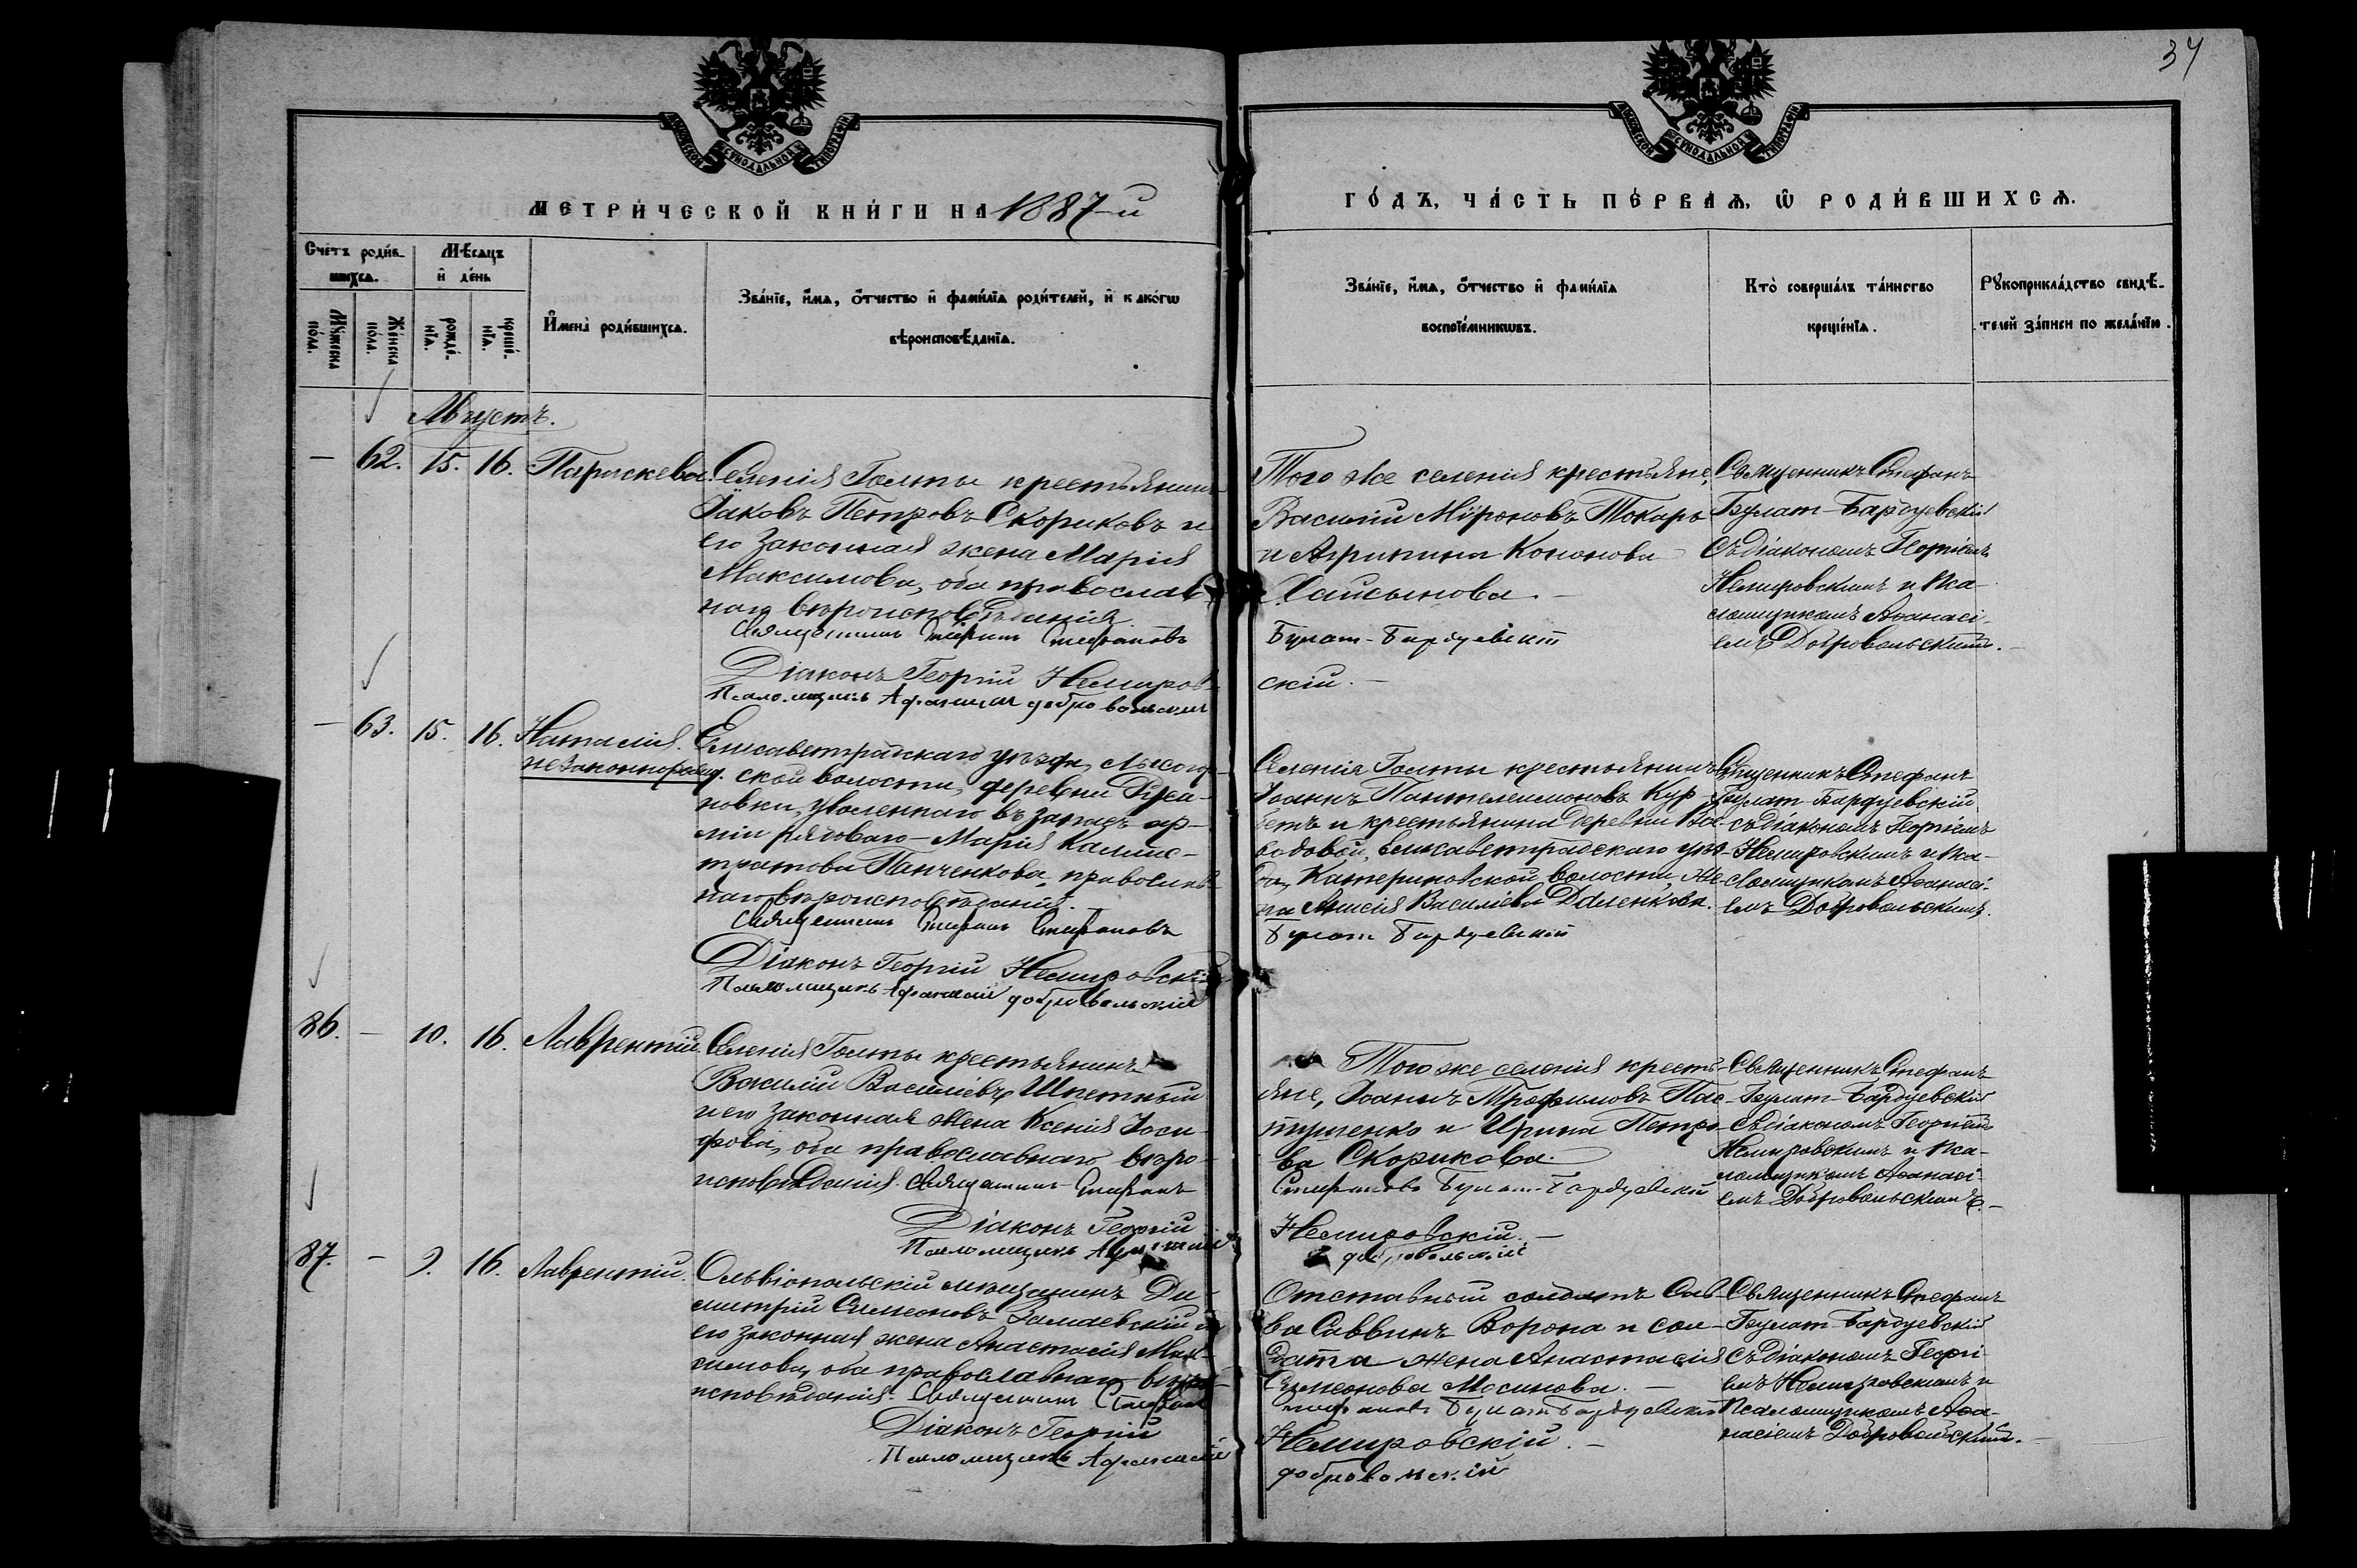 34
МОСКОВСКОЙ СѴНОДАЛЬНОЙ ТИПОГРАФІИ
МОСКОВСКОЙ СѴНОДАЛЬНОЙ ТИПОГРАФІИ
МЕТРИ́ЧЕСКОЙ КНИ́ГИ НА 1887-й
ГО́ДЪ, ЧА́СТЬ ПЕ́РВАѦ, Ѡ҆ РОДИ́ВШИХСѦ.
Счетъ роди́в-
шихсѧ.
Мꙋ́жеска по́ла.
Же́нска по́ла.
Мѣсѧцъ
и҆ де́нь
рожде́-
нїѧ.
креще́-
нїѧ.
И҆мена̀ роди́вшихсѧ.
Зва́нїе, и҆́мѧ, ѻ҆́тчество и҆ фами́лїѧ роди́телей, и҆ како́гѡ
вѣроисповѣ́данїѧ.
Зва́нїе, и҆́мѧ, ѻ҆́тчество и҆ фами́лїѧ
воспрїе́мникѡвъ.
Кто̀ соверша́лъ та́инство
креще́нїѧ.
Рꙋкоприкла́дство свидѣ́-
телей за́писи по жела́нїю.
Августъ.
— 62. 15. 16. Параскева.
Селенія Голты крестьянинъ
Іаковъ Петровъ Скориковъ и
его законная жена Марія
Максимова, оба православ-
наго вѣроисповѣданія.
Священникъ Стефанъ Стефановъ
Діаконъ Георгій Немиров-
Псаломщикъ Афанасій Добровольскій
Того же селенія крестьяне,
Василій Міроновъ Токарь
и Агрипина Кононова
Булат-Бардуевскій
скій.—
Священникъ Стефанъ
Булат-Бардуевскій
съ діакономъ Георгіемъ
Немировскимъ и Пса-
ломщикомъ Аѳанасі-
емъ Добровольскимъ.
— 63. 15. 16. Наталія.
незаконнорожд.
Елисаветградскаго уѣзда, Лысогор-
ской волости, деревни
новки, уволеннаго въ запасъ ар-
міи рядоваго — Марія Калис-
тратова Панченкова, православ-
наго вѣроисповѣданія.
Священникъ Стефанъ Стефановъ
Діаконъ Георгій Немировскій
Псаломщикъ Афанасій Добровольскій
Селенія Голты крестьянинъ
Іоаннъ Пантелеимоновъ Кур-
и крестьянина деревни
Елисаветградскаго уѣз-
да, Катериновской волости, же-
на Анисія Василіева
Булат Бардуевскій
Священникъ Стефанъ
Булат-Бардуевскій
съ діакономъ Георгіемъ
Немировскимъ и Пса-
ломщикомъ Аѳанасі-
емъ Добровольскимъ.
86. — 10. 16. Лаврентій.
Селенія Голты крестьянинъ
Василій Василіевъ Шпетный
и его законная жена Ксенія Іоси-
фова, оба православнаго вѣро-
исповѣданія. Священникъ Стефанъ
Діаконъ Георгій
Псаломщикъ Афанасій
Того же селенія кресть-
яне, Іоаннъ Трофимовъ Пас-
тушенко и Ирина Петро-
ва Скорикова.
Стефановъ Булат-Бардуевскій
Немировскій.—
Добровольскій
Священникъ Стефанъ
Булат-Бардуевскій
съ діакономъ Георгіемъ
Немировскимъ и Пса-
ломщикомъ Аѳанасі-
емъ Добровольскимъ.—
87. — 9. 16. Лаврентій.
Ольвіопольскій мѣщанинъ Ди-
митрій Симеоновъ Замаевскій и
его законная жена Анастасія Мак-
симова, оба православнаго вѣро-
исповѣданія. Священникъ Стефанъ
Діаконъ Георгій
Псаломщикъ Афанасій
Отставный солдатъ Сав-
ва Саввинъ Ворона и сол-
дата жена Анастасія
Симеонова Мосинова.—
Стефановъ Булат Бардуевскій
Немировскій.—
Добровольскій
Священникъ Стефанъ
Булат-Бардуевскій
съ діакономъ Георгі-
емъ Немировскимъ и
Псаломщикомъ Аѳа-
насіемъ Добровольскимъ.—